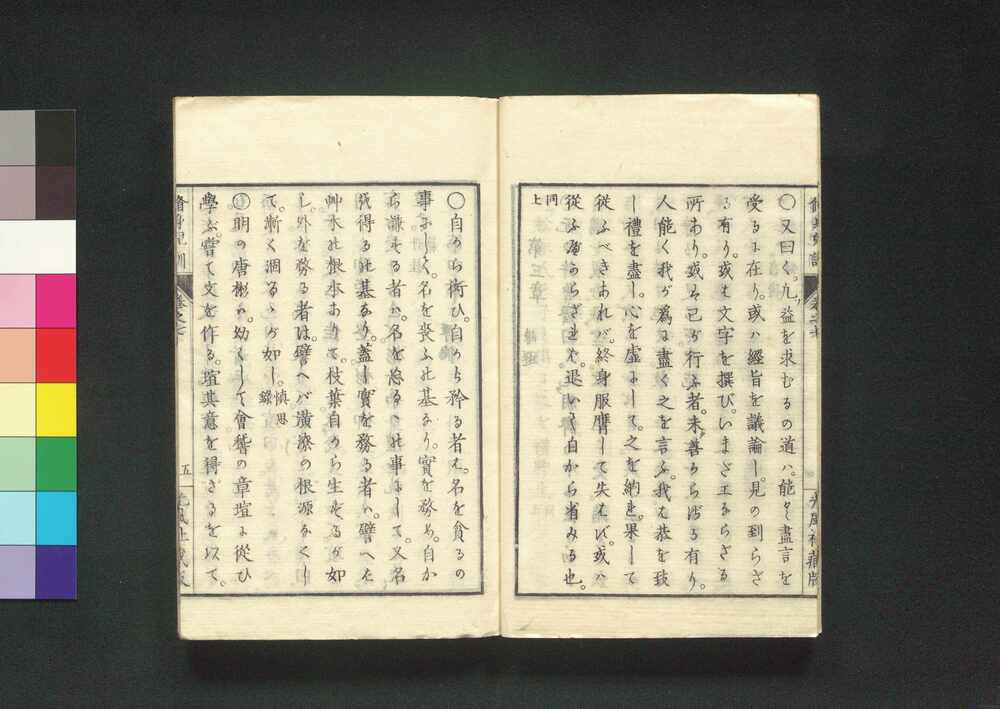 ○又曰く。凡益を求むるの道ハ。能く盡言を
受るに在り。或ハ經旨を議論し。見の到らざ
る有り。或は文字を撰び。いまだ工ならざる
所あり。或は己が行ふ者。未善からざる有り。
人能く我が爲に盡く之を言ふ。我は恭を致
し禮を盡し。心を虚にして。之を納れ。果して
從ふべきあれバ。終身服膺して失はず。或ハ
從ふ可からざれバ。退いて自から省みる也。
同上
○自から衒ひ。自から矜る者は。名を貪るの
事にして。名を喪ふの基なり。實を務め。自か
ら謙する者ハ。名を忘るゝの事にして。又名
を得るの基なり。蓋し實を務る者ハ。譬へば
艸木の根本ありて。枝葉自から生ずるが如
し。外を務る者は。譬へバ潢潦の根源なくし
て。漸く涸るゝが如し。愼思録
○明の唐彬ハ。幼くして會稽の章瑄に從ひ
學ぶ。嘗て文を作る。瑄其意を得ざるを以て。
脩身児訓
卷之七
五
光風社藏版